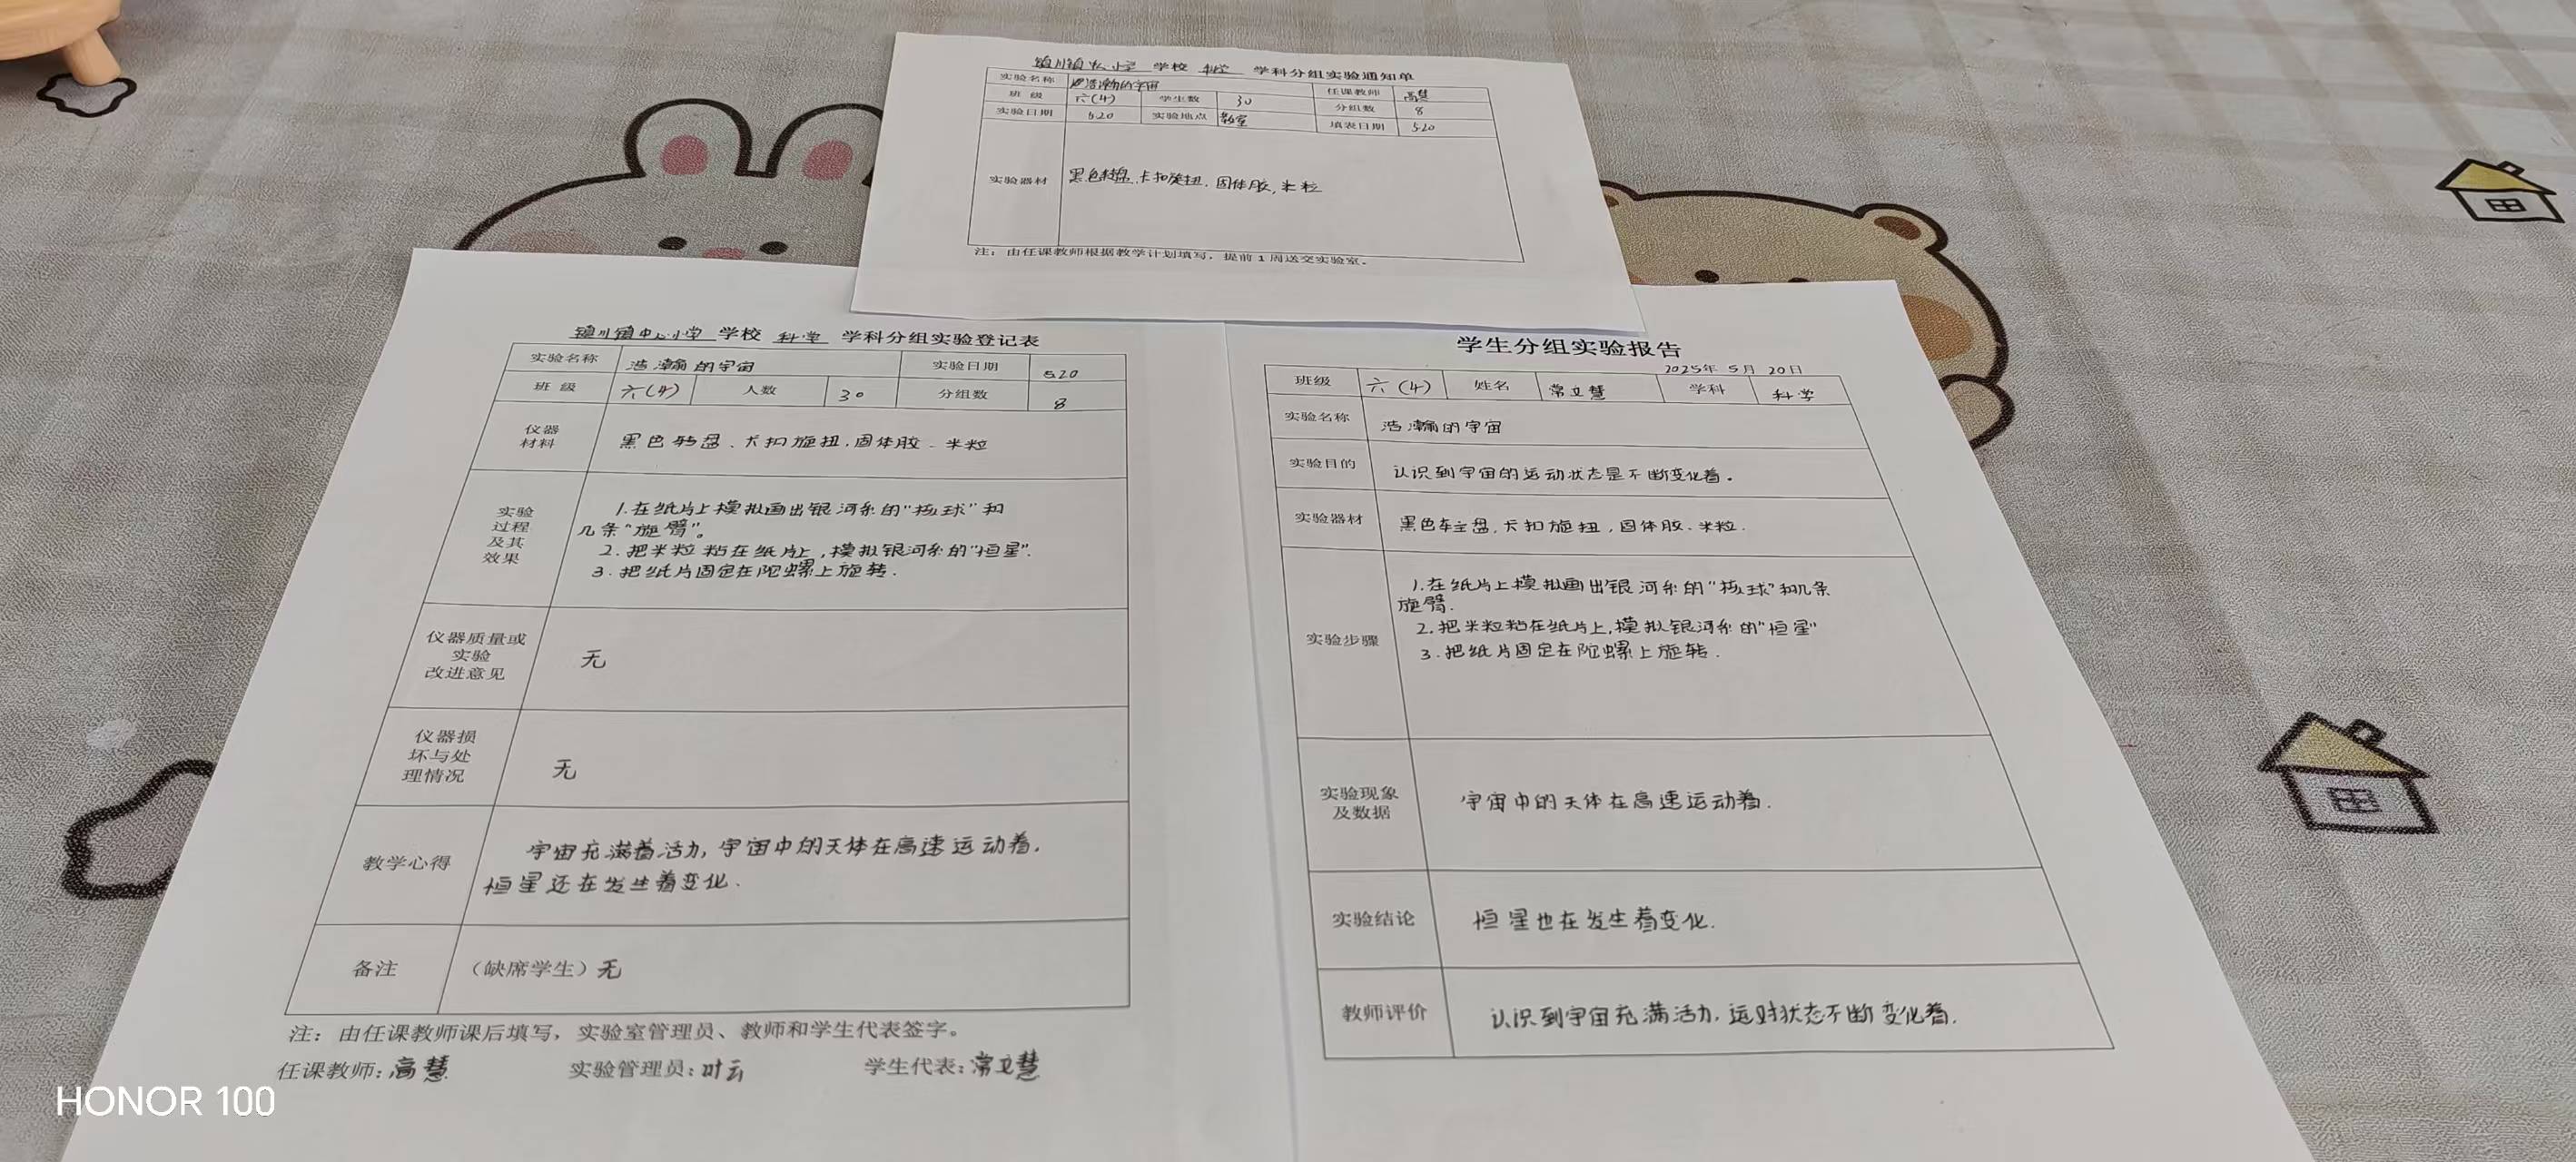 镇川镇中心小学 学校 科学 学科分组实验通知单
实验名称 浩瀚的宇宙 任课教师 高慧
班 级 六(4) 学生数 30 分组数 8
实验日期 5.20 实验地点 教室 填表日期 5.20
实验器材 黑色转盘、卡扣旋扭,固体胶,米粒
注：由任课教师根据教学计划填写，提前1周送交实验室。
镇川镇中心小学 学校 科学 学科分组实验登记表
实验名称 浩瀚的宇宙 实验日期 5.20
班 级 六(4) 人数 30 分组数 8
仪器
材料
黑色转盘、卡扣旋扭,固体胶、米粒
实验
过程
及其
效果
1.在纸片上模拟画出银河系的"核球"和
几条"旋臂"。
2.把米粒粘在纸片上,模拟银河系的"恒星".
3.把纸片固定在陀螺上旋转.
仪器质量或
实验
改进意见
无
仪器损
坏与处
理情况
无
教学心得
宇宙充满着活力,宇宙中的天体在高速运动着.
恒星还在发生着变化.
备注 （缺席学生）无
注：由任课教师课后填写，实验室管理员、教师和学生代表签字。
任课教师:高慧 实验管理员:叶云 学生代表:常立慧
学生分组实验报告
2025年 5月 20日
班级 六(4) 姓名 常立慧 学科 科学
实验名称 浩瀚的宇宙
实验目的 认识到宇宙的运动状态是不断变化着.
实验器材 黑色转盘,卡扣旋扭,固体胶、米粒.
实验步骤
1.在纸片上模拟画出银河系的"核球"和几条
旋臂.
2.把米粒粘在纸片上,模拟银河系的"恒星"
3.把纸片固定在陀螺上旋转.
实验现象
及数据
宇宙中的天体在高速运动着.
实验结论 恒星也在发生着变化.
教师评价 认识到宇宙充满活力,运动状态不断变化着.
HONOR 100